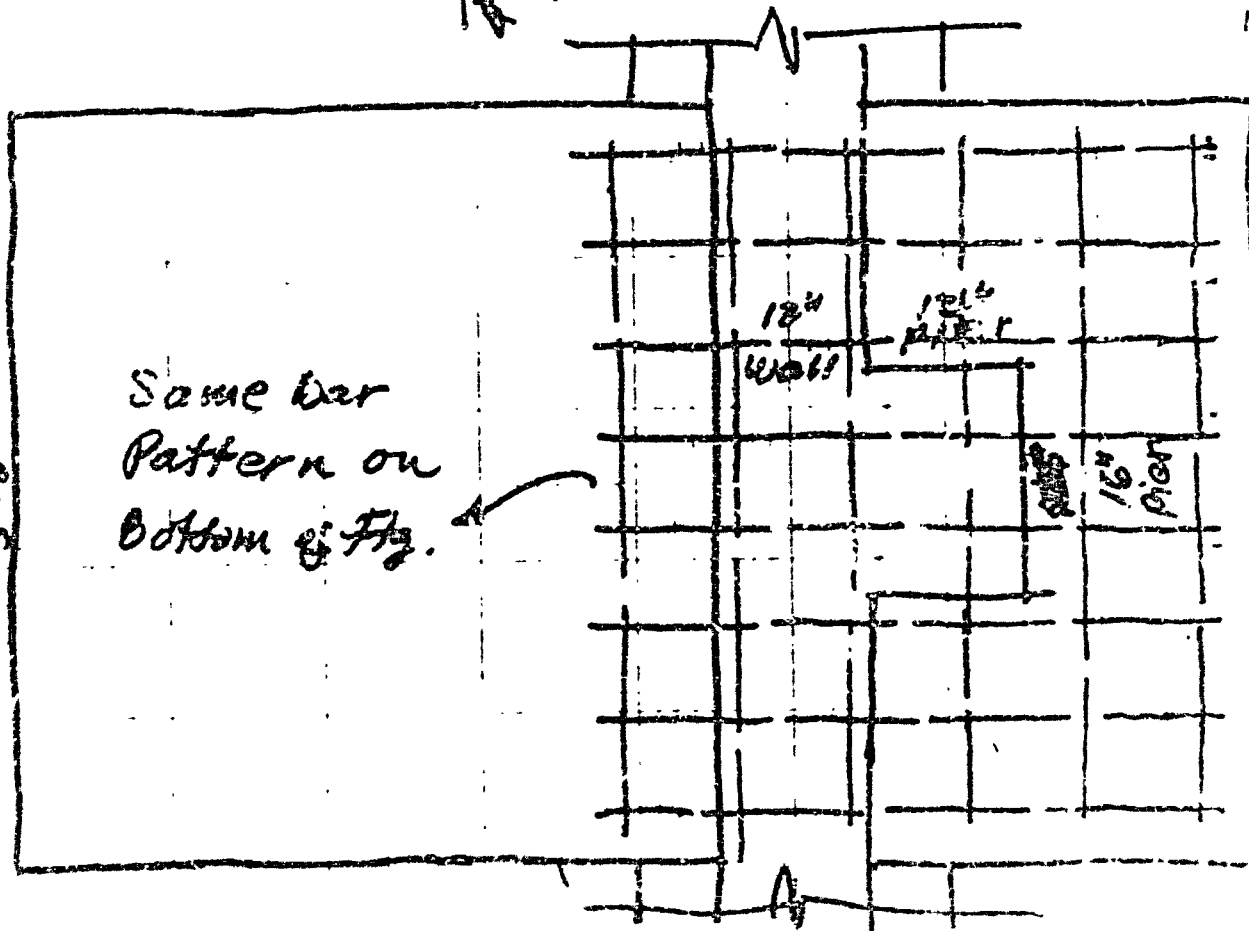 Same bar
Pattern on
Bottom of Ftg.
12"
wall
pier
16"
pier